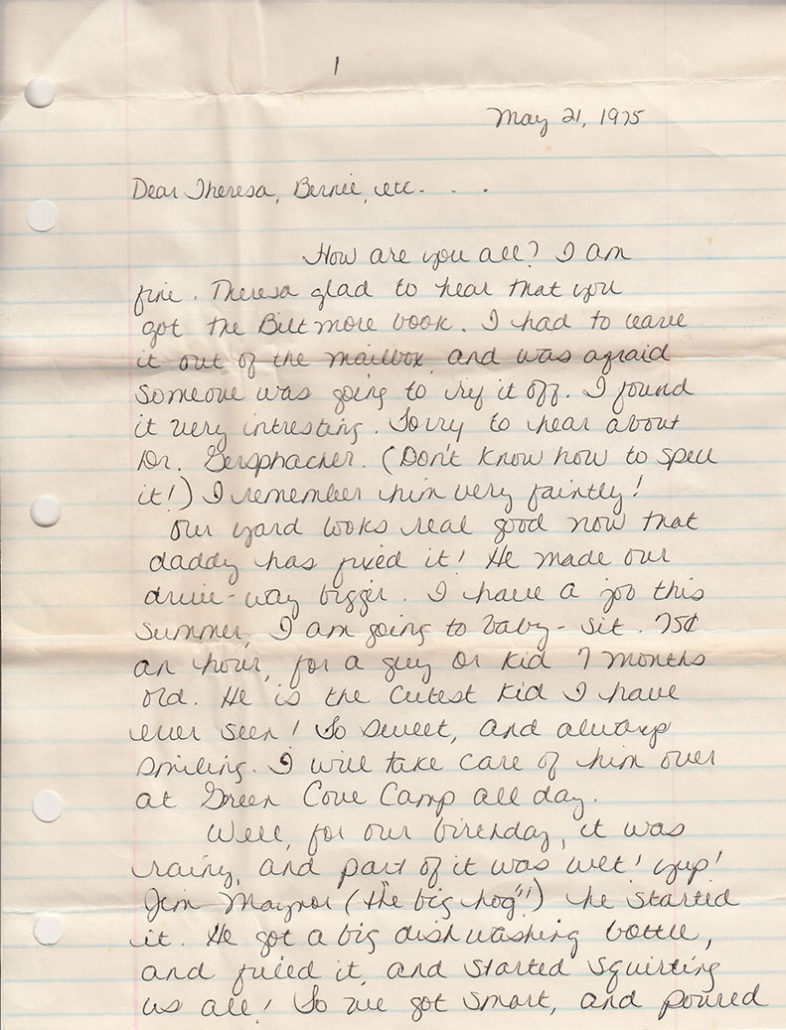 1
May 21, 1975
Dear Theresa, Bernie, etc. . .
How are you all? I am
fine. Theresa glad to hear that you
got the Biltmore book. I had to leave
it out of the mailbox, and was afraid
someone was going to rip it off. I found
it very intresting. Sorry to hear about
Dr. Gersphacher. (Don't know how to spell
it!) I remember him very faintly!
Our yard looks real good now that
daddy has fixed it! He made our
drive-way bigger. I have a job this
summer, I am going to baby-sit. 75¢
an hour, for a guy or kid 7 months
old. He is the cutest kid I have
ever seen! So sweet, and always
smiling. I will take care of him over
at Green Cove Camp all day.
Well, for our birthday, it was
rainy, and part of it was wet! yup!
Jim Maynor (the big "hog"!) he started
it. He got a big dishwashing bottle,
and filled it, and started squirting
us all! So we got smart, and poured